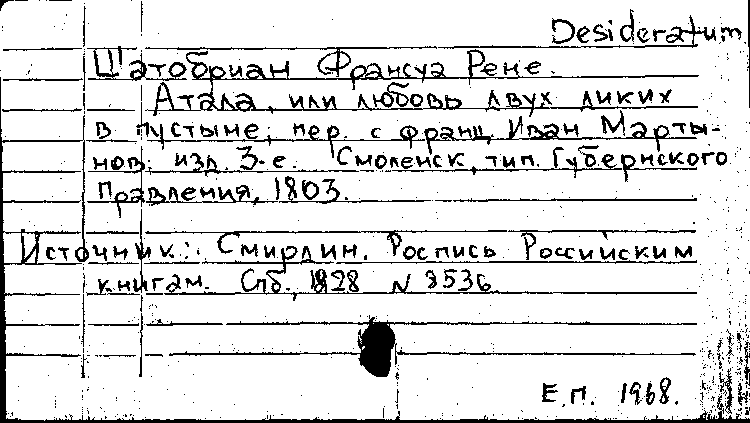 Desideratum
Шатобриан Франсуа Рене.
Атала, или любовь двух диких
в пустыне, пер. с франц. Иван Марты-
нов. изд. 3-е. Смоленск, тип. Губернского
Правления, 1803.
Источник: Смирдин. Роспись Российским
книгам. Спб., 1828 N 8536
Е.П. 1968.